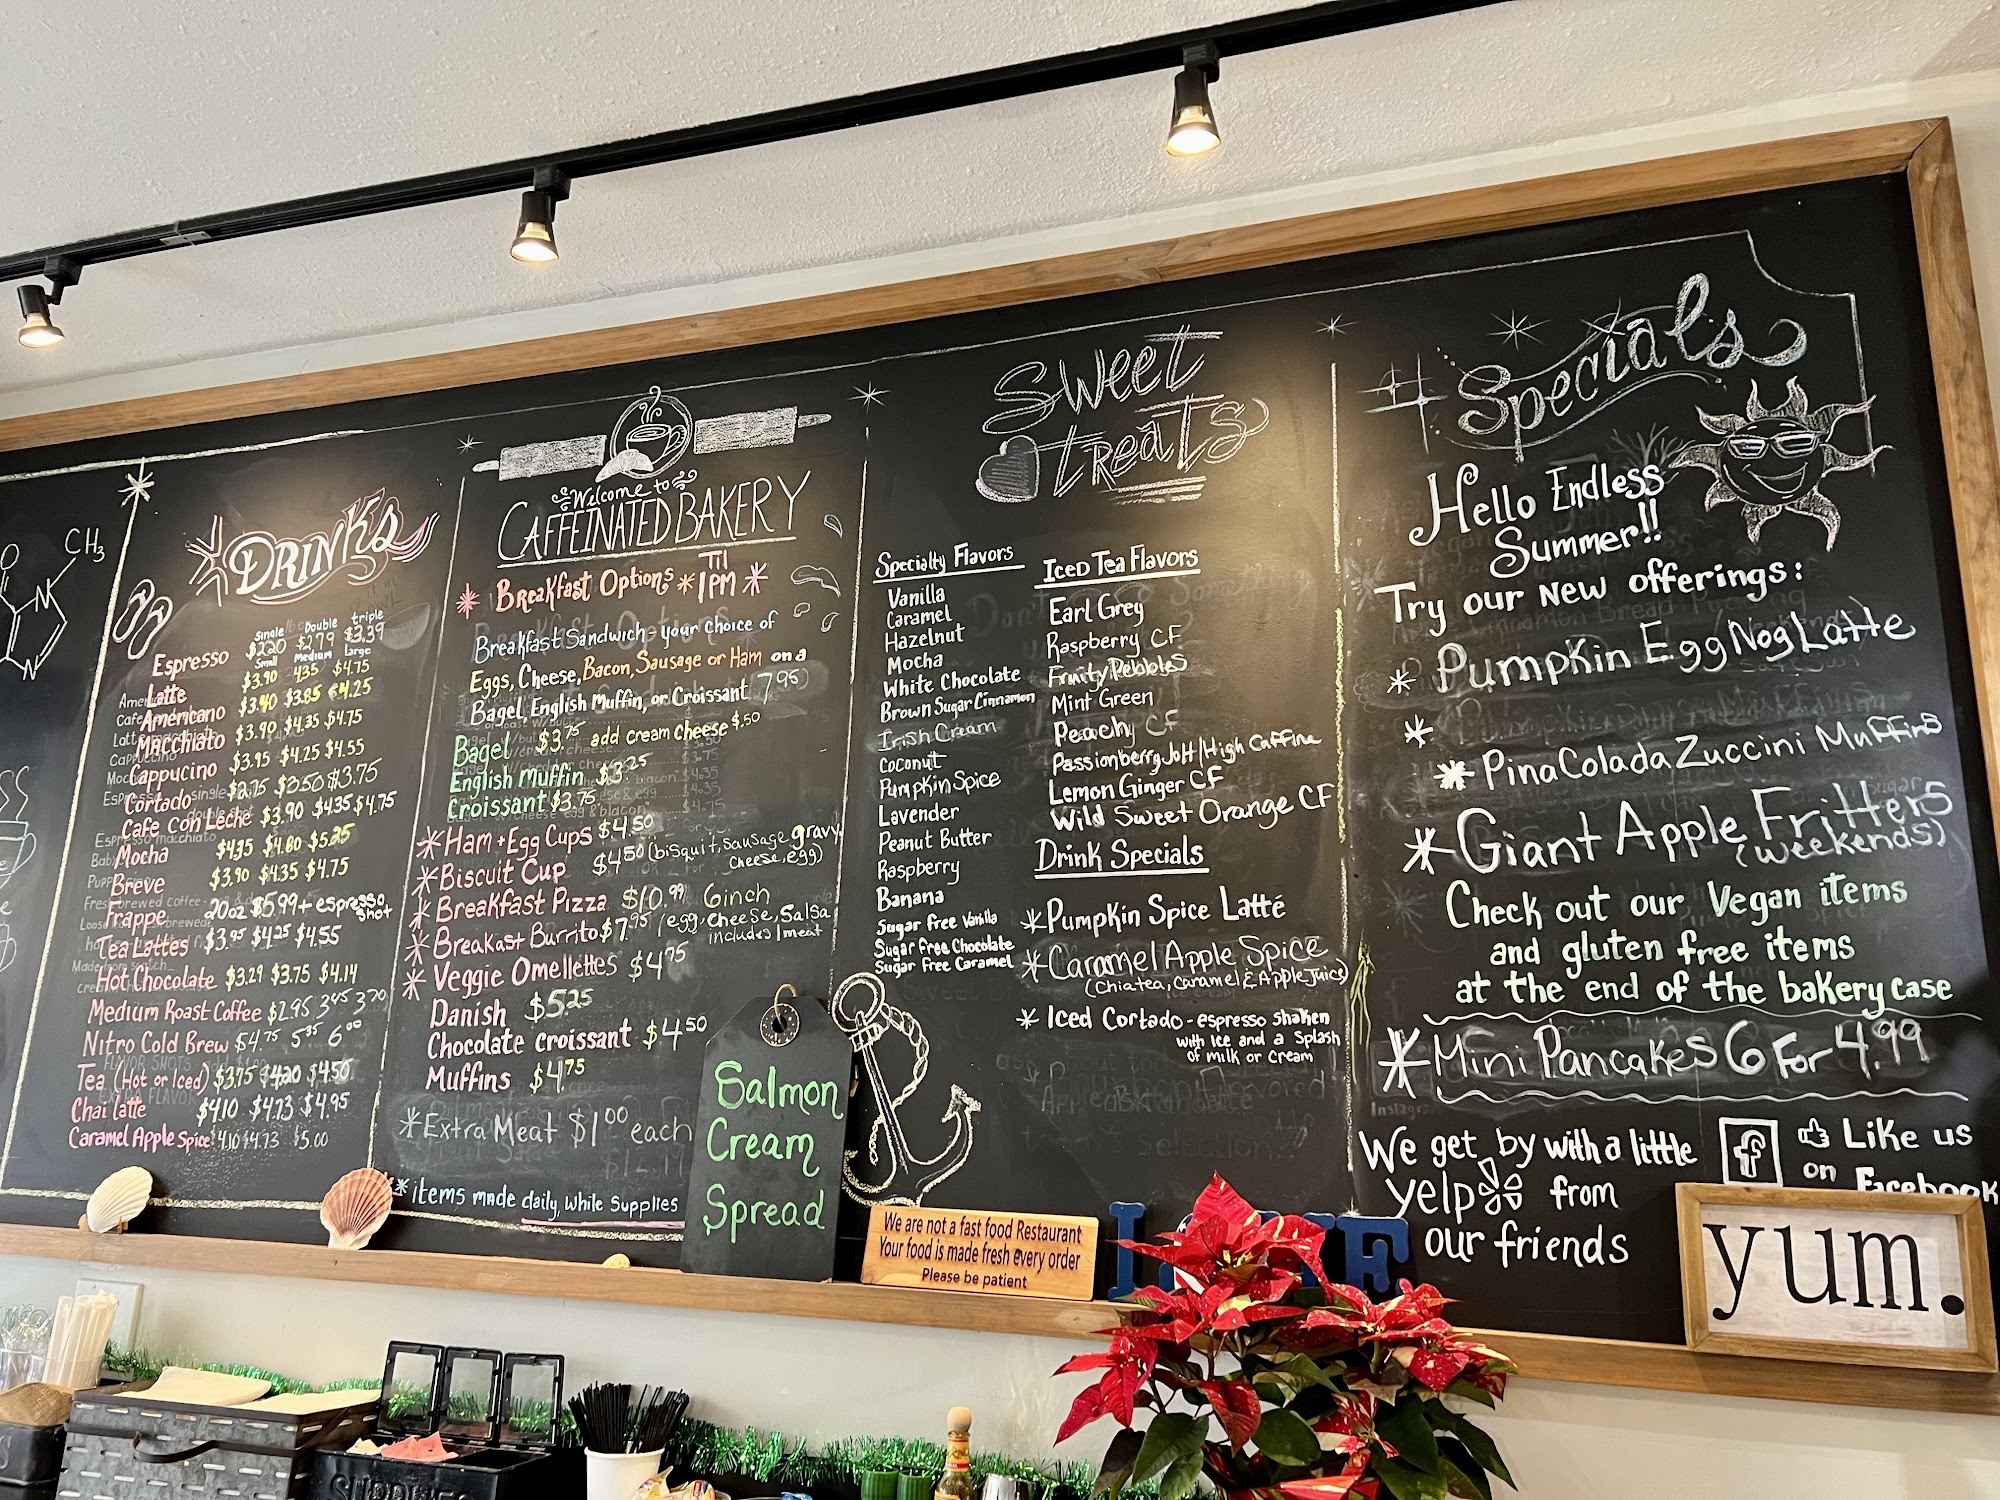 CH₃
O
N
N
DRINKS
Single Double triple
Espresso $2.20 $2.79 $3.39
Small Medium Large
Latte $3.90 4.35 $4.75
Americano $3.40 $3.85 $4.25
Macchiato $3.90 $4.35 $4.75
Cappucino $3.95 $4.25 $4.55
Cortado $2.75 $3.50 $3.75
Cafe Con Leche $3.90 $4.35 $4.75
Mocha $4.35 $4.80 $5.25
Breve $3.90 $4.35 $4.75
Frappe 20oz $5.99 + espresso shot
Tea Lattes $3.95 $4.25 $4.55
Hot Chocolate $3.29 $3.75 $4.14
Medium Roast Coffee $2.95 3.45 3.70
Nitro Cold Brew $4.75 5.35 6.00
Tea (Hot or Iced) $3.75 $4.20 $4.50
Chai latte $4.10 $4.73 $4.95
Caramel Apple Spice $4.10 $4.73 $5.00
Welcome to
CAFFEINATED BAKERY
* Breakfast Options * Til 1PM *
Breakfast Sandwich - your choice of
Eggs, Cheese, Bacon, Sausage or Ham on a
Bagel, English Muffin, or Croissant 7.95
Bagel $3.75 add cream cheese $.50
English Muffin $3.25
Croissant $3.75
* Ham + Egg Cups $4.50
* Biscuit Cup $4.50 (bisquit, sausage gravy, cheese, egg)
* Breakfast Pizza $10.99 6inch
* Breakast Burrito $7.95 (egg, cheese, salsa
includes 1 meat
* Veggie Omellettes $4.75
Danish $5.25
Chocolate croissant $4.50
Muffins $4.75
* Extra Meat $1.00 each
* items made daily, while supplies
Salmon
Cream
Spread
Sweet
Treats
Specialty Flavors
Vanilla
Caramel
Hazelnut
Mocha
White Chocolate
Brown Sugar Cinnamon
Irish Cream
Coconut
Pumpkin Spice
Lavender
Peanut Butter
Raspberry
Banana
Sugar Free Vanilla
Sugar Free Chocolate
Sugar Free Caramel
Iced Tea Flavors
Earl Grey
Raspberry CF
Fruity Pebbles
Mint Green
Peachy CF
Passionberry Jolt/High Caffine
Lemon Ginger CF
Wild Sweet Orange CF
Drink Specials
* Pumpkin Spice Latté
* Caramel Apple Spice
(Chia tea, Caramel & Apple juice)
* Iced Cortado - espresso shaken
with ice and a splash
of milk or cream
Specials
Hello Endless
Summer!!
Try our new offerings:
* Pumpkin EggNog Latte
*
* Pina Colada Zuccini Muffins
* Giant Apple Fritters
(weekends)
Check out our Vegan items
and gluten free items
at the end of the bakery case
* Mini Pancakes 6 For 4.99
We get by with a little
yelp from
our friends
f
Like us
on Facebook
We are not a fast food Restaurant
Your food is made fresh every order
Please be patient
LOVE
yum.